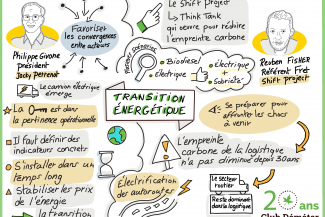 Favoriser
les convergences
entre acteurs
Philippe Givone
Président
Jacky Perrenot
Le Shift Project
Think Tank
qui œuvre pour réduire
l'empreinte carbone
Reuben FISHER
Référent Fret
shift project
Biodiesel
électrique
Electrique
+
Sobriété
Le camion électrique
émerge
La
est dans
la pertinence opérationnelle
TRANSITION
ÉNERGÉTIQUE
Se préparer pour
affronter les chocs
à venir
Il faut définir des
indicateurs concrets
S'installer dans un
temps long
Stabiliser les prix
de l'énergie
la transition
L'empreinte
carbone de la logistique
n'a pas diminué depuis 30 ans
Electrification
des autoroutes
Le secteur
routier
Reste dominant
dans la logistique
20 ans
Club Déméter